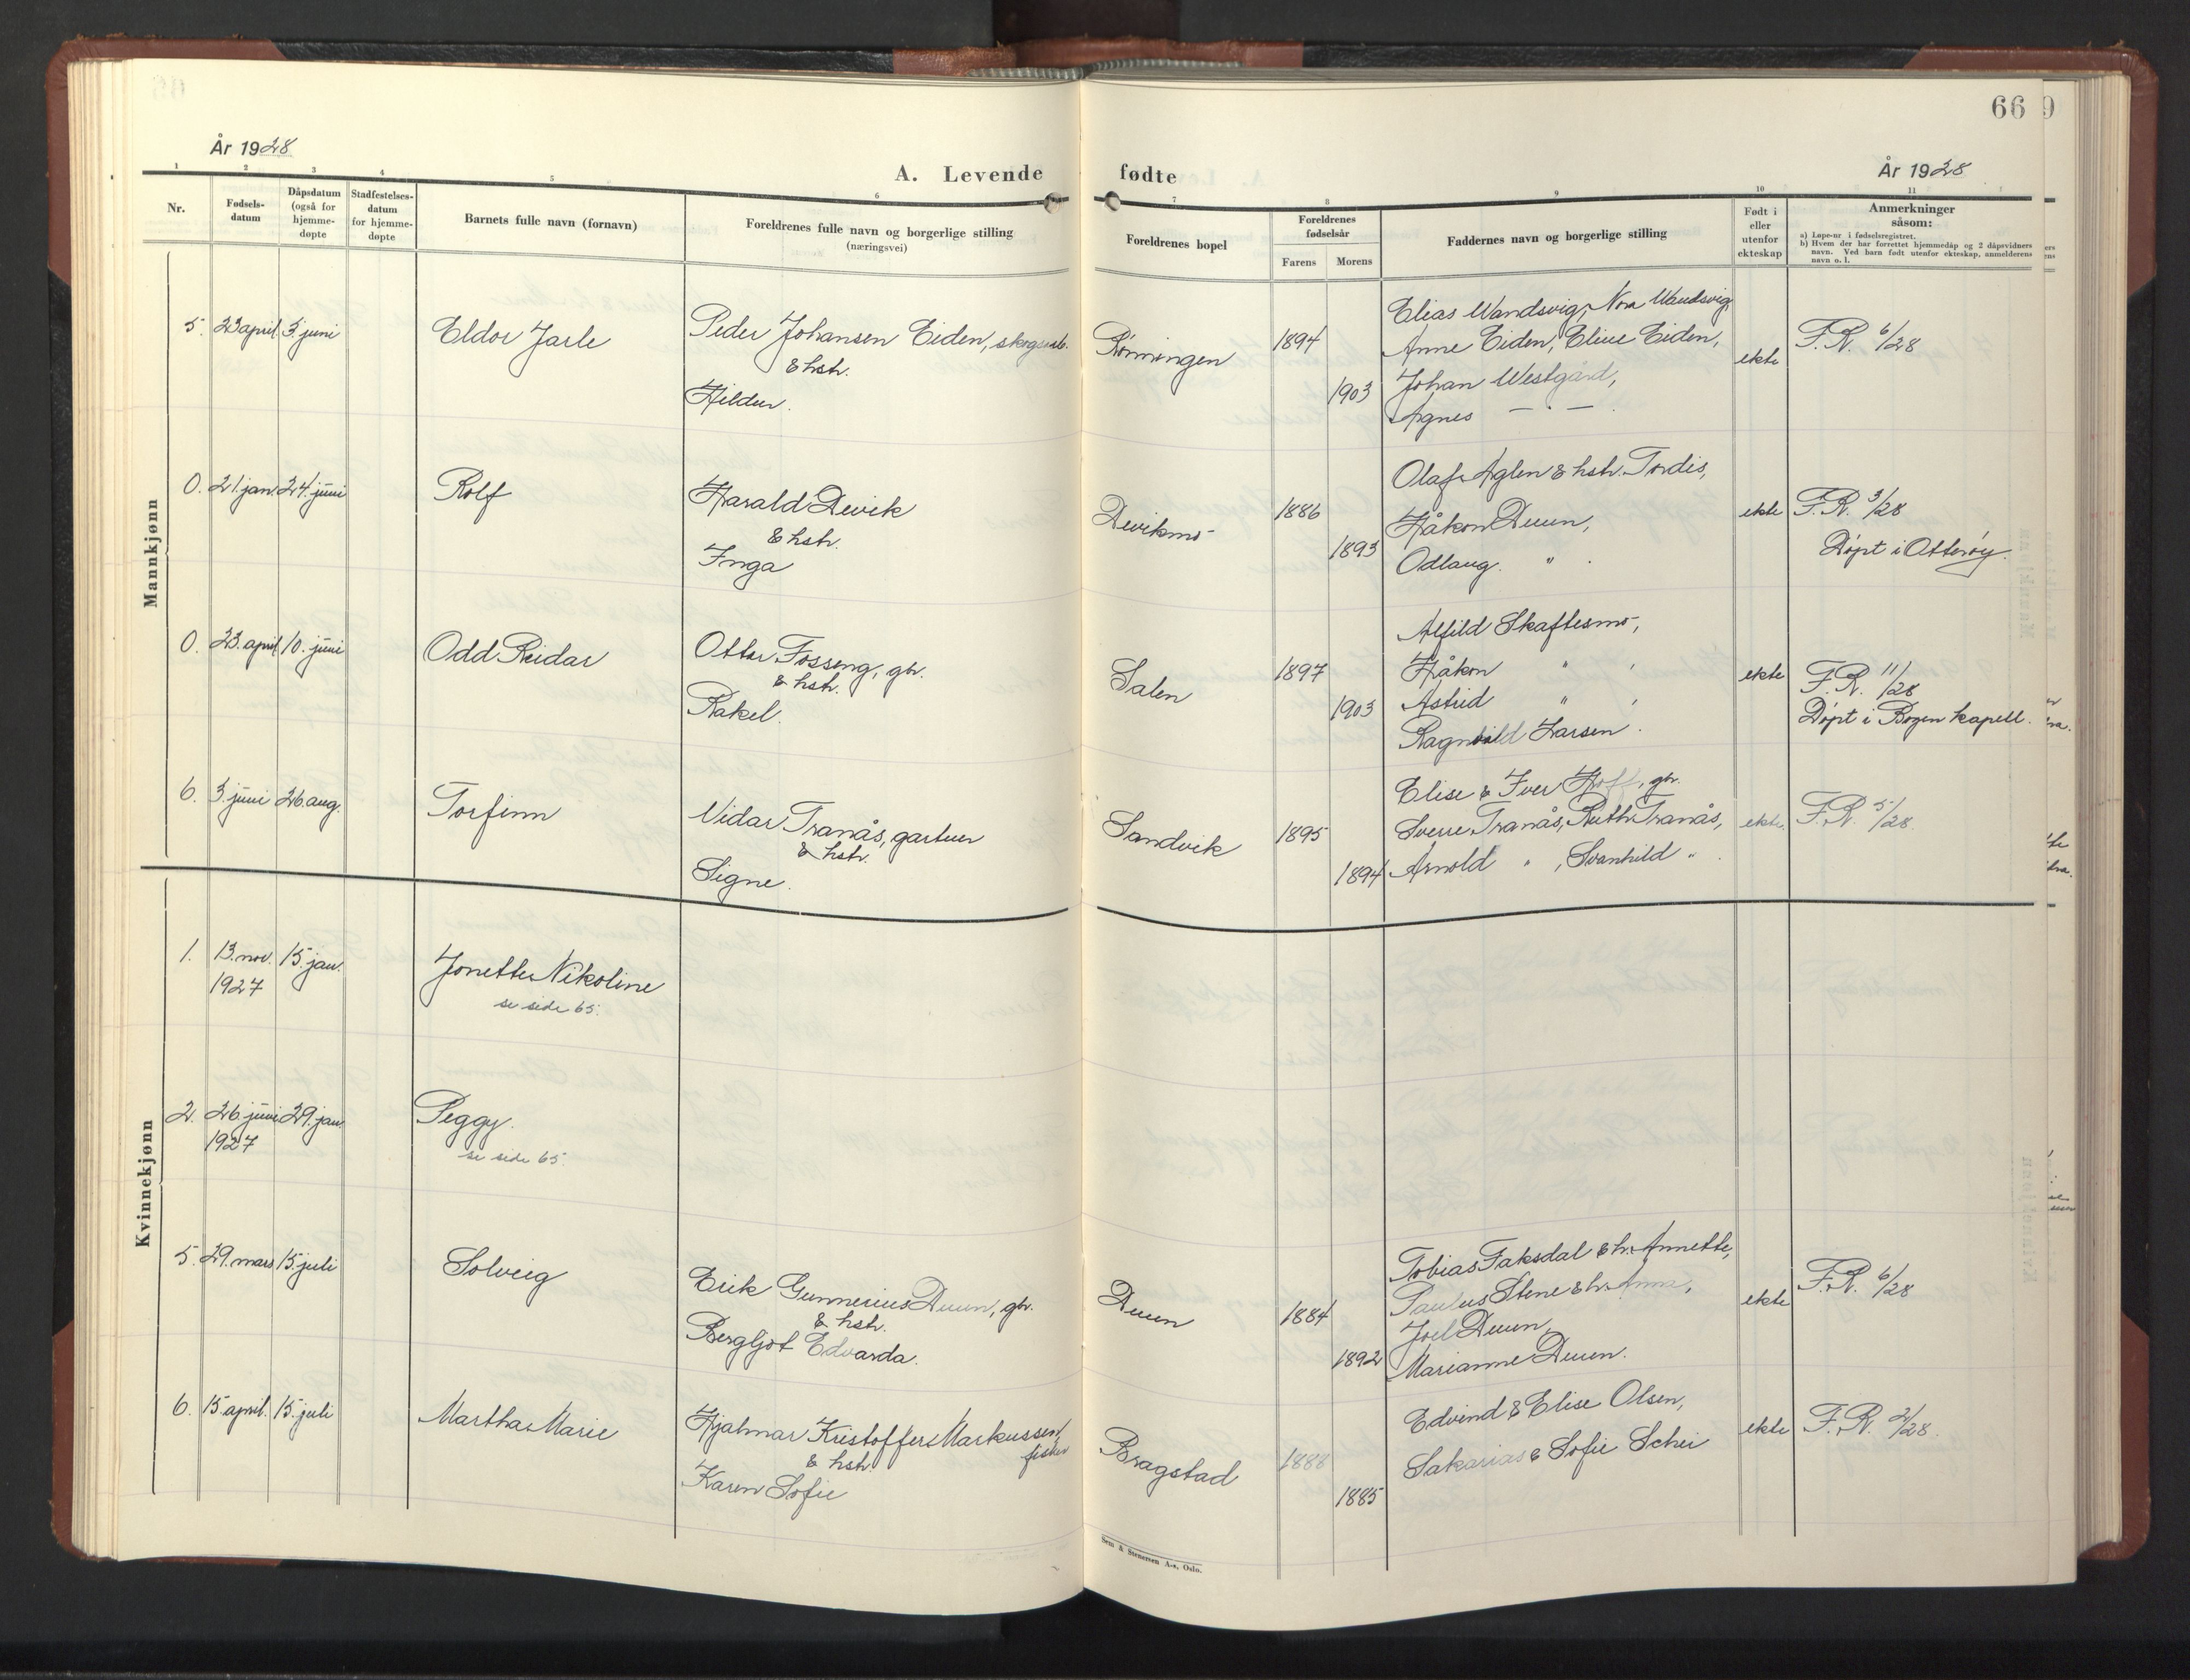 66
År 1928
A. Levende fødte
År 1928
1 2 3 4 5 6 7 8 9 10 11
Nr.
Fødsels-
datum
Dåpsdatum
(også for
hjemme-
døpte
Stadfestelses-
datum
for hjemme-
døpte
Barnets fulle navn (fornavn)
Foreldrenes fulle navn og borgerlige stilling
(næringsvei)
Foreldrenes bopel
Foreldrenes
fødselsår
Farens
Morens
Faddernes navn og borgerlige stilling
Født i
eller
utenfor
ekteskap
Anmerkninger
såsom:
a) Løpe-nr i fødselsregistret.
b) Hvem der har forrettet hjemmedåp og 2 dåpsvidners
navn. Ved barn født utenfor ekteskap, anmelderens
navn o. l.
Mannkjønn
5. 23 april 3 juni
Eldor Jarle
Peder Johansen Eiden, skogsarb.
& hstr.
Hildur.
Rømmingen
1894
1903
Elias Wandsvig, Nora Wandsvig,
Anne Eiden, Eline Eiden,
Johan Westgård,
Agnes — " — .
ekte
F.R. 6/28
0. 21. jan. 24. juni
Rolf
Harald Devik
& hstr.
Inga
Devikmo
1886
1893
Olaf Aglen & hstr. Tordis,
Håkon Duun,
Odlaug. " .
ekte
F.R. 3/28
Døpt i Otterøy.
0. 23. april 10. juni
Odd Reidar
Ottar Fosseng, gbr.
& hstr.
Rakel.
Salen
1897
1903
Alfild Skaftesmo,
Håkon " ,
Astrid " ,
Ragnvald Larsen .
ekte
F.R. 11/28
Døpt i Bogen kapell.
6. 3. juni 26 aug.
Torfinn
Vidar Tranås, gartner
& hstr.
Signe.
Sandvik
1895
1894
Elise & Iver Hoff, gbr.
Sverre Tranås, Ruth Tranås,
Arnold " , Svanhild " .
ekte.
F.R. 5/28
Kvinnekjønn
1. 13. nov. 15. jan.
1927
Jonette Nikoline
se side 65.
2. 26. juni 29. jan.
1927
Peggy.
se side 65.
5. 29. mars 15. juli
Solveig
Erik Gunnerius Duun, gbr.
& hstr.
Bergljot Edvarda.
Duun
1884
1892
Tobias Faksdal & h. Annette,
Paulus Stene & h. Anna,
Joel Duun,
Marianne Duun.
ekte
F.R. 6/28
6. 15. april. 15. juli
Martha Marie
Hjalmar Kristoffer Markussen,
fisker
& hstr.
Karen Sofie
Bragstad
1888
1885
Edvind & Elise Olsen,
Sakarias & Sofie Schei
ekte
F.R. 2/28.
Sem & Stenersen A-s, Oslo.